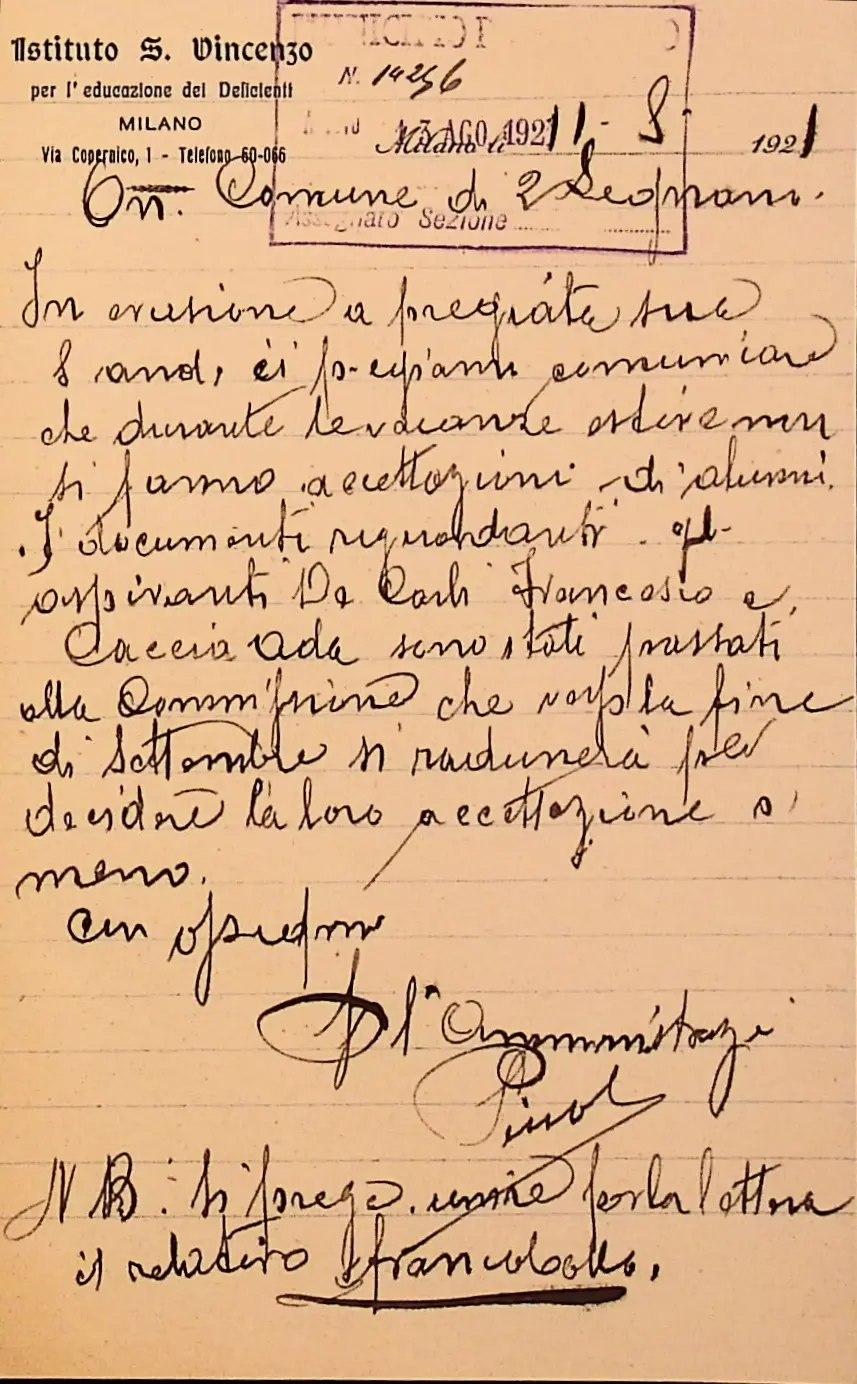 Istituto S. Vincenzo
per l'educazione dei Deficienti
MILANO
Via Copernico, 1 - Telefono 60-066
N. 14256
13 AGO. 1921
Milano li 11 - 8 1921
Assegnato Sezione
On. Comune di Legnano.
In evasione a pregiata sua
8 and, ci pregiamo comunicare
che durante le vacanze estive non
si fanno accettazioni di alunni.
I documenti riguardanti gli
aspiranti De Carli Francesco e
Caccia Ada sono stati passati
alla Commissione che verso la fine
di Settembre si radunerà per
decidere la loro accettazione o
meno.
Con ossequio
p l'Amministraz
NB: Si prega unire per la lettera
il relativo francobollo.